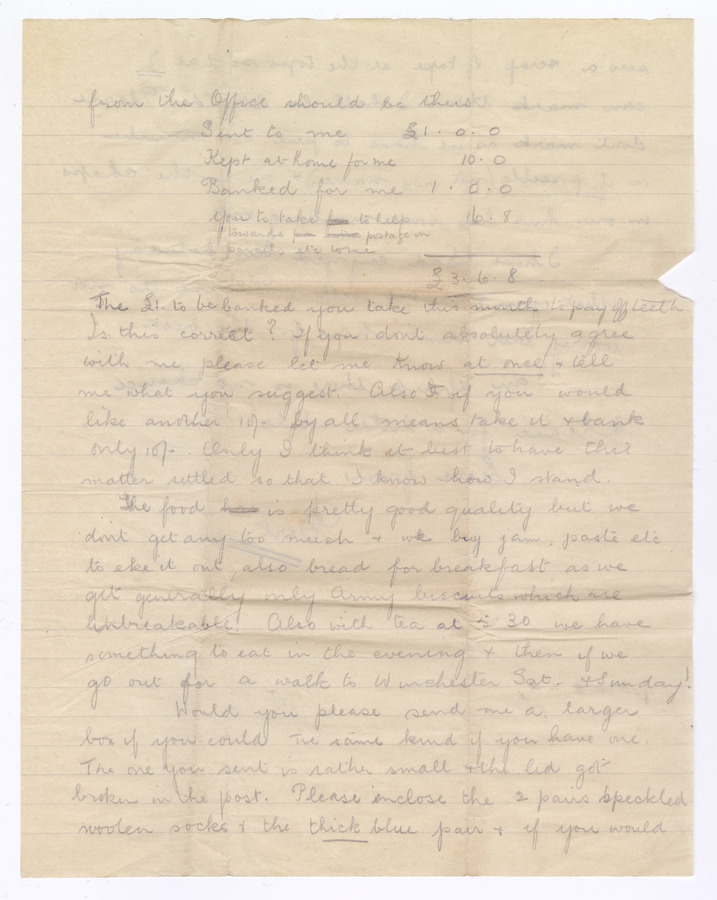 from the Office should be thus
Sent to me £1 . 0 . 0
Kept at home for me 10 . 0
Banked for me 1 . 0 . 0
you to take to help 16 8
towards postage on
parcels etc to me
£ 3 . 6 . 8
The £1. to be banked you take this month to pay off teeth
Is this correct? If you dont absolutely agree
with me please let me know at once & tell
me what you suggest. Also if you would
like another 10/- by all means take it & bank
only 10/-. Only I think it best to have this
matter settled so that I know how I stand.
The food is pretty good quality but we
dont get any too much & we buy jam, paste etc
to eke it out also bread for breakfast as we
get generally only Army biscuits which are
unbreakable! Also with tea at 4 30 we have
something to eat in the evening & then if we
go out for a walk to Winchester Sat. & Sunday!
Would you please send me a larger
box if you could the same kind if you have one
The one you sent is rather small & the lid got
broken in the post. Please enclose the 2 pairs speckled
woolen socks & the thick blue pair & if you would